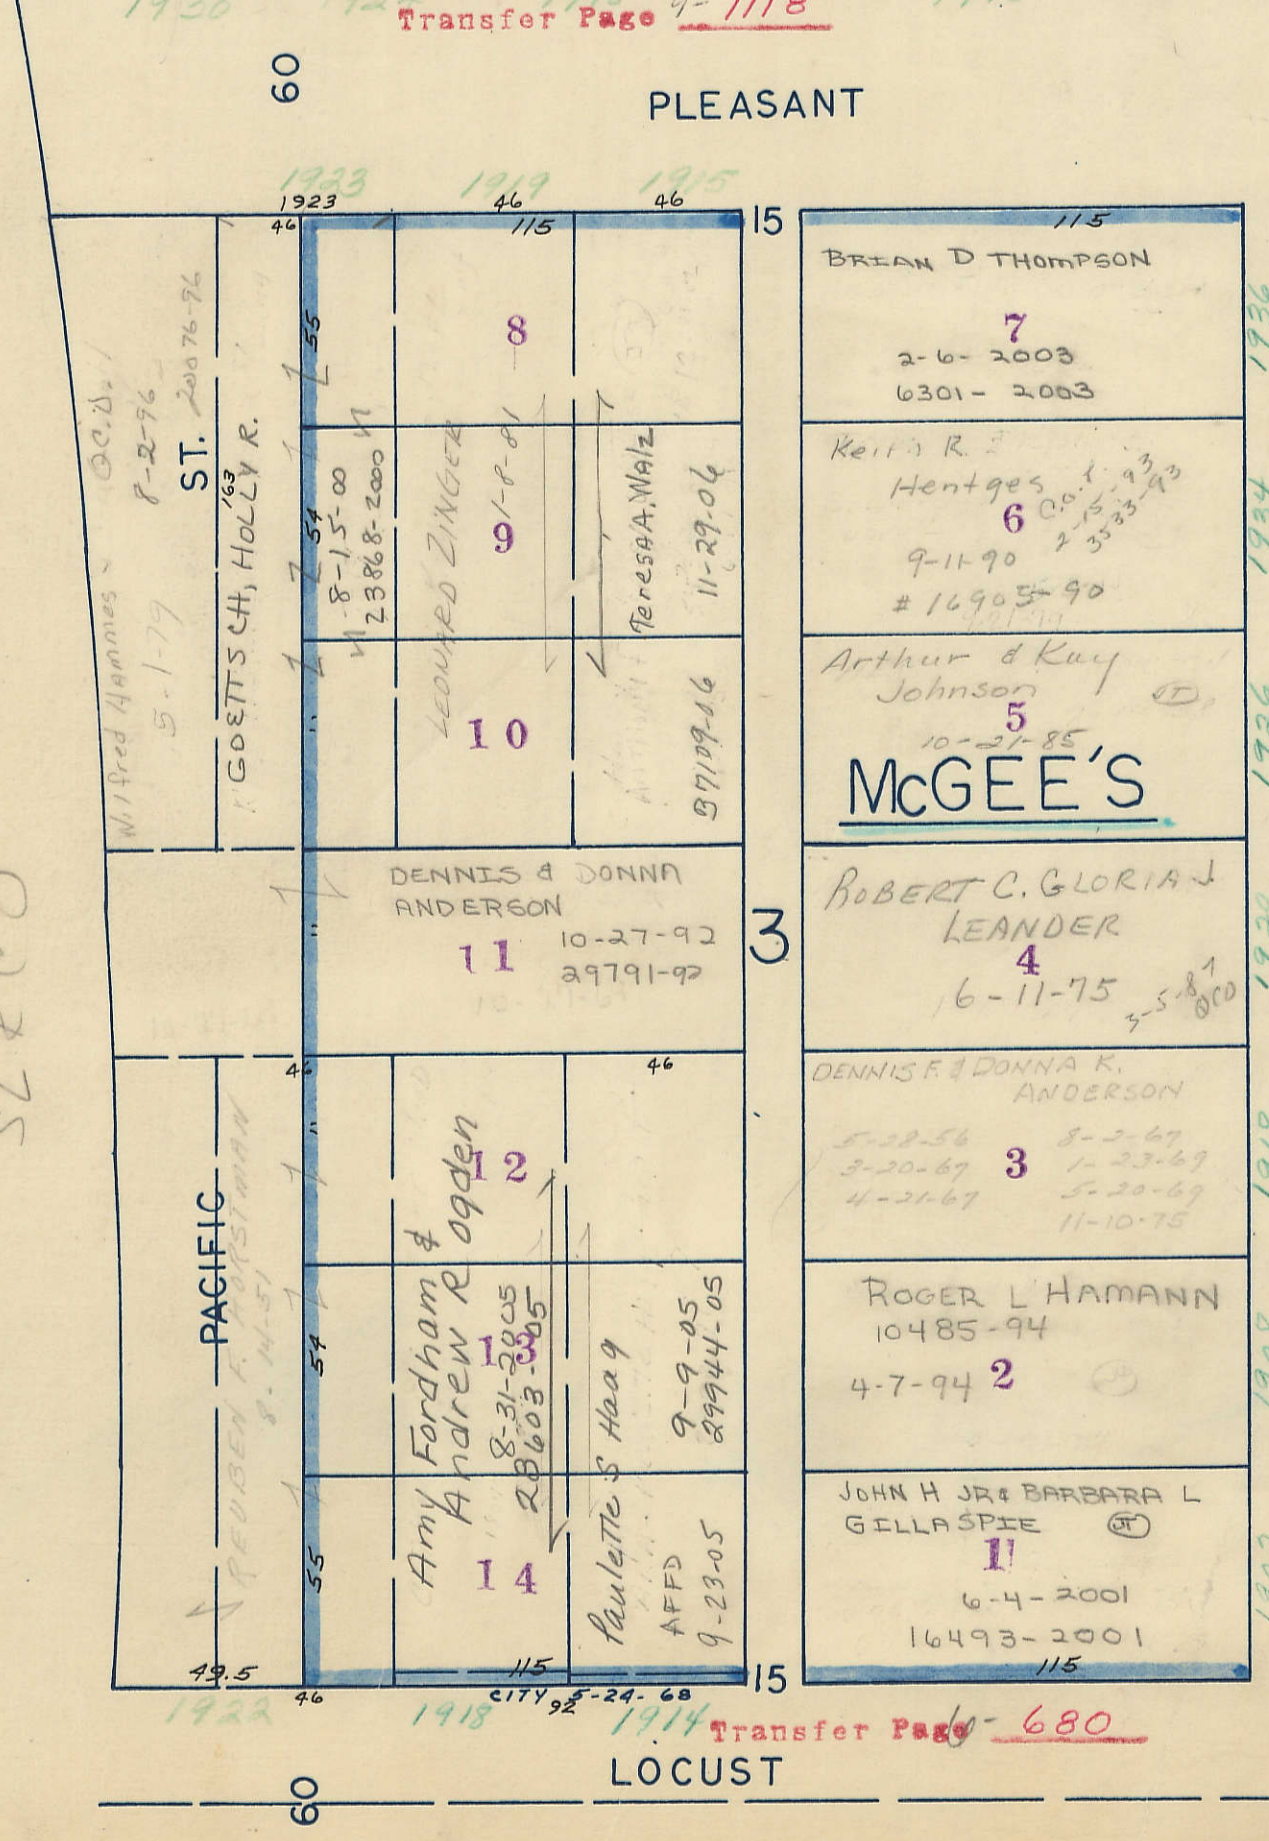 Transfer Page 1118
60
PLEASANT
1923
1919
1915
1923
46
46
46
115
15
115
BRIAN D THOMPSON
7
2-6-2003
6301-2003
Keith R.
Hentges
6
C.O.T.
2-15-93
3533-93
9-11-90
# 16905-90
Arthur & Kay
Johnson
JT
5
10-21-85
McGEE'S
ROBERT C. GLORIA J
LEANDER
4
6-11-75
3-5-87
QCD
DENNIS F. & DONNA K.
ANDERSON
5-28-56
3-20-67
4-21-67
3
8-2-67
1-23-69
5-20-69
11-10-75
ROGER L HAMANN
10485-94
4-7-94
2
JOHN H JR & BARBARA L
GILLASPIE
JT
1
6-4-2001
16493-2001
115
Wilfred Hammes
Q.C.D.
5-1-79
8-2-96
20076-96
ST.
'63
GOETTSCH, HOLLY R.
55
54
"
8-15-00
23868-2000
8
9
10
LEONARD ZINGER
1-8-81
Teresa A. Walz
11-29-06
37109-06
DENNIS & DONNA
ANDERSON
11
10-27-92
29791-92
"
3
46
46
"
PACIFIC
REUBEN F. HORSTMAN
8-14-51
54
55
12
13
14
Amy Fordham &
Andrew R Ogden
8-31-2005
28603-05
Paulette S Haag
9-9-05
29944-05
AFFD
9-23-05
49.5
46
115
15
CITY 5-24-68
92
1922
1918
1914
Transfer Page 680
LOCUST
60
1936
1934
1926
1920
1918